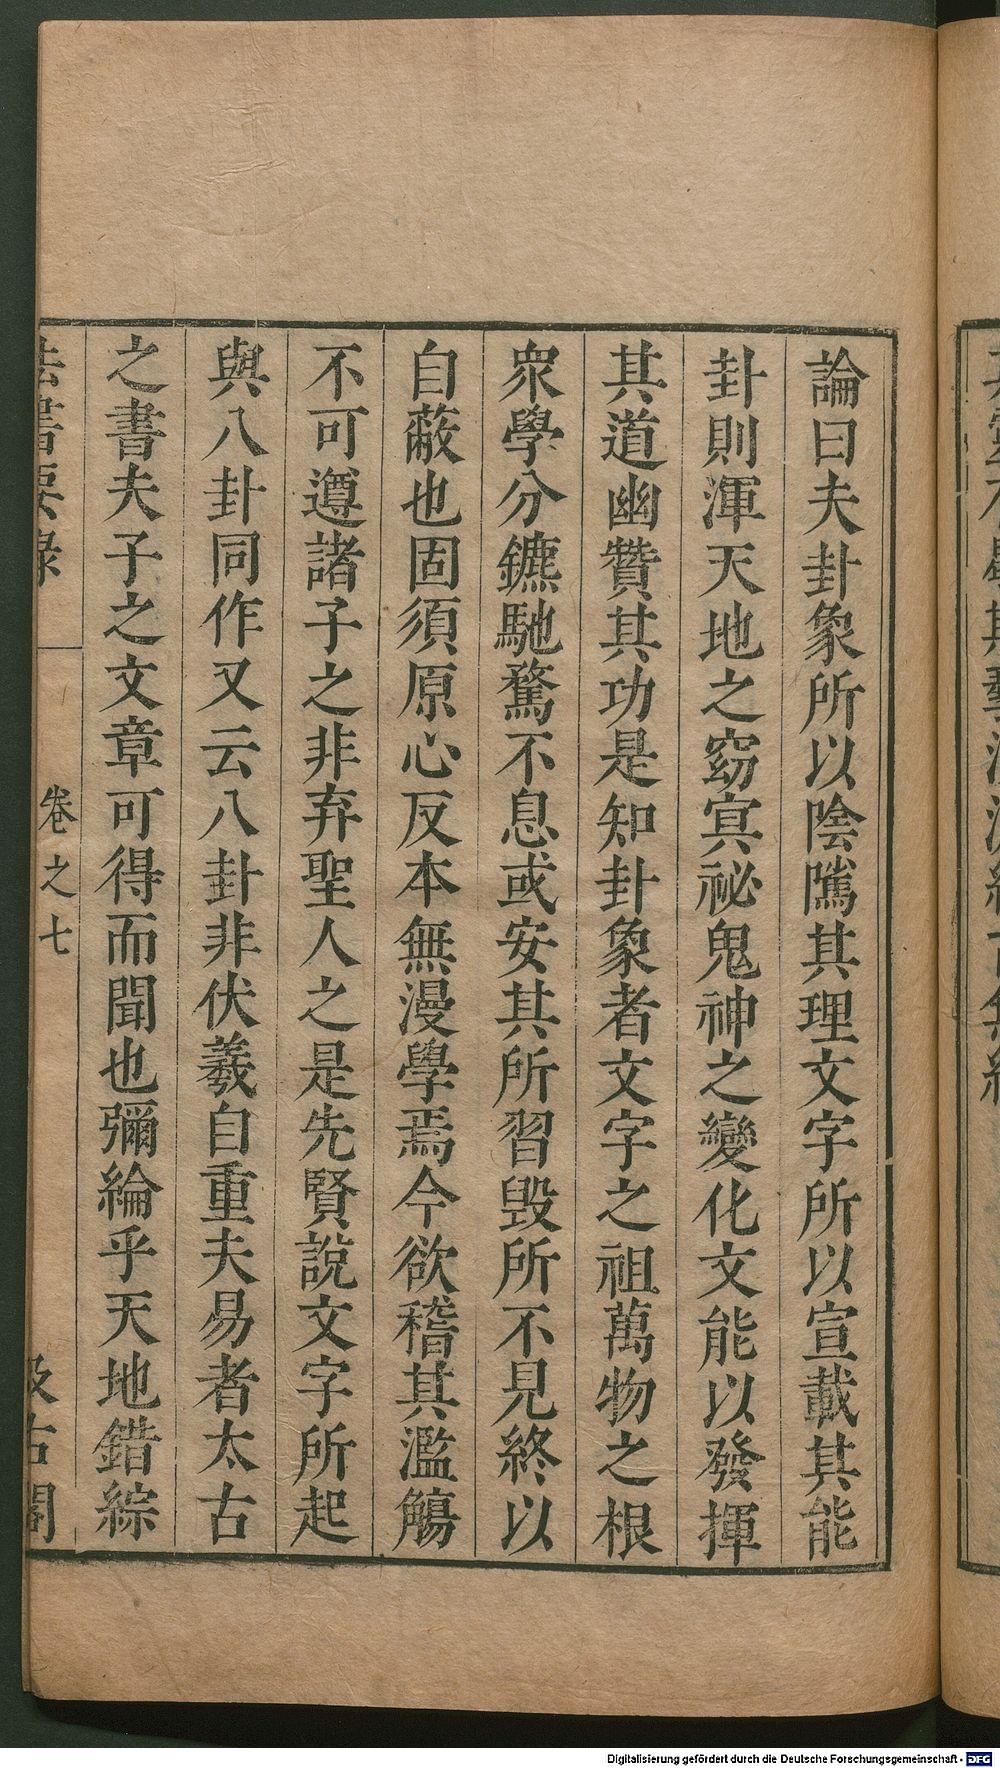 論曰夫卦象所以陰隲其理文字所以宣載其能
卦則渾天地之窈冥祕鬼神之變化文能以發揮
其道幽贊其功是知卦象者文字之祖萬物之根
衆學分鑣馳騖不息或安其所習毀所不見終以
自蔽也固須原心反本無漫學焉今欲稽其濫觴
不可遵諸子之非弃聖人之是先賢說文字所起
與八卦同作又云八卦非伏羲自重夫易者太古
之書夫子之文章可得而聞也彌綸乎天地錯綜
法書要錄
卷之七
汲古閣
Digitalisierung gefördert durch die Deutsche Forschungsgemeinschaft - DFG